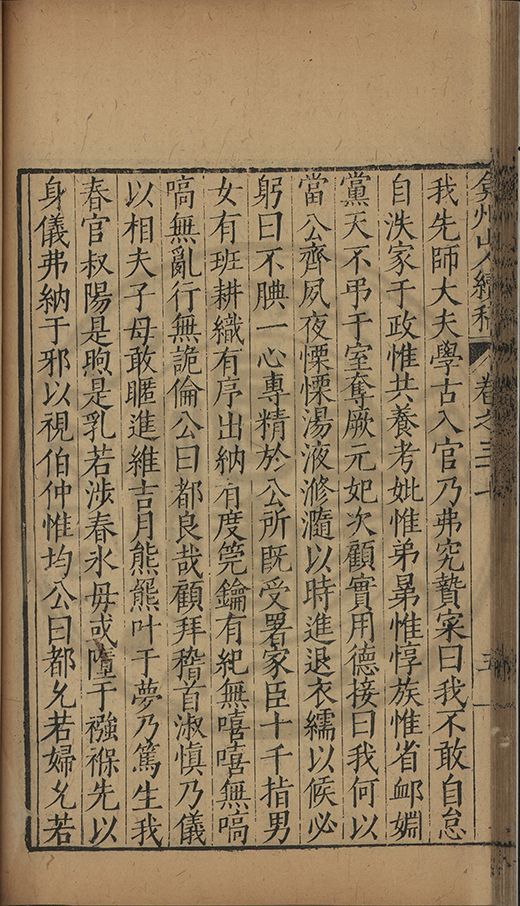 弇州山人續稿 卷之三十 五
我先師大夫學古入官乃弗究贄寀曰我不敢自怠
自泆家于政惟共養考妣惟弟晜惟惇族惟省䘏婣
黨天不弔于室奪厥元妃次顧實用德接曰我何以
當公齊夙夜慄慄湯液滫瀡以時進退衣繻以候必
躬曰不腆一心專精於公所既受署家臣十千指男
女有班耕織有序出納有度筦鑰有紀無嘻嘻無嗃
嗃無亂行無詭倫公曰都良哉顧拜稽首淑慎乃儀
以相夫子母敢暱進維吉月熊熊叶于夢乃篤生我
春官叔陽是煦是乳若涉春氷毋或墮于襁褓先以
身儀弗納于邪以視伯仲惟均公曰都允若婦允若